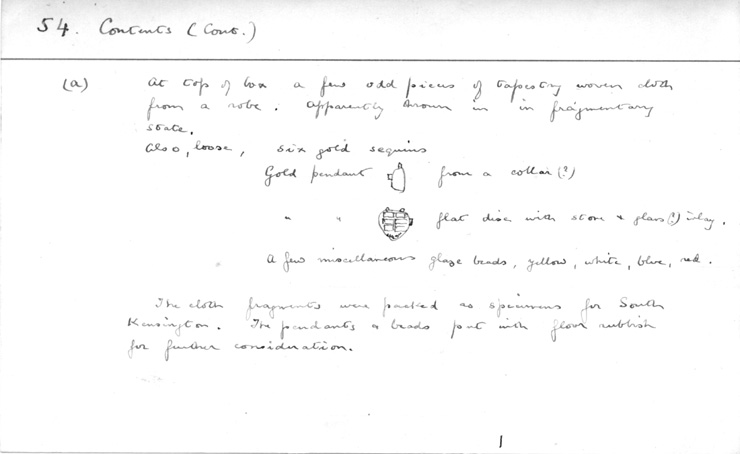 54. Contents (Cont.)
(a) At top of box a few odd pieces of tapestry woven cloth
from a robe. Apparently thrown in in fragmentary
state.
Also, loose, six gold sequins
Gold pendant from a collar (?)
" " flat disc with stone & glass (?) inlay.
A few miscellaneous glaze beads, yellow, white, blue, red.
The cloth fragments were packed as specimens for South
Kensington. The pendants & beads put with floor rubbish
for further consideration.
1